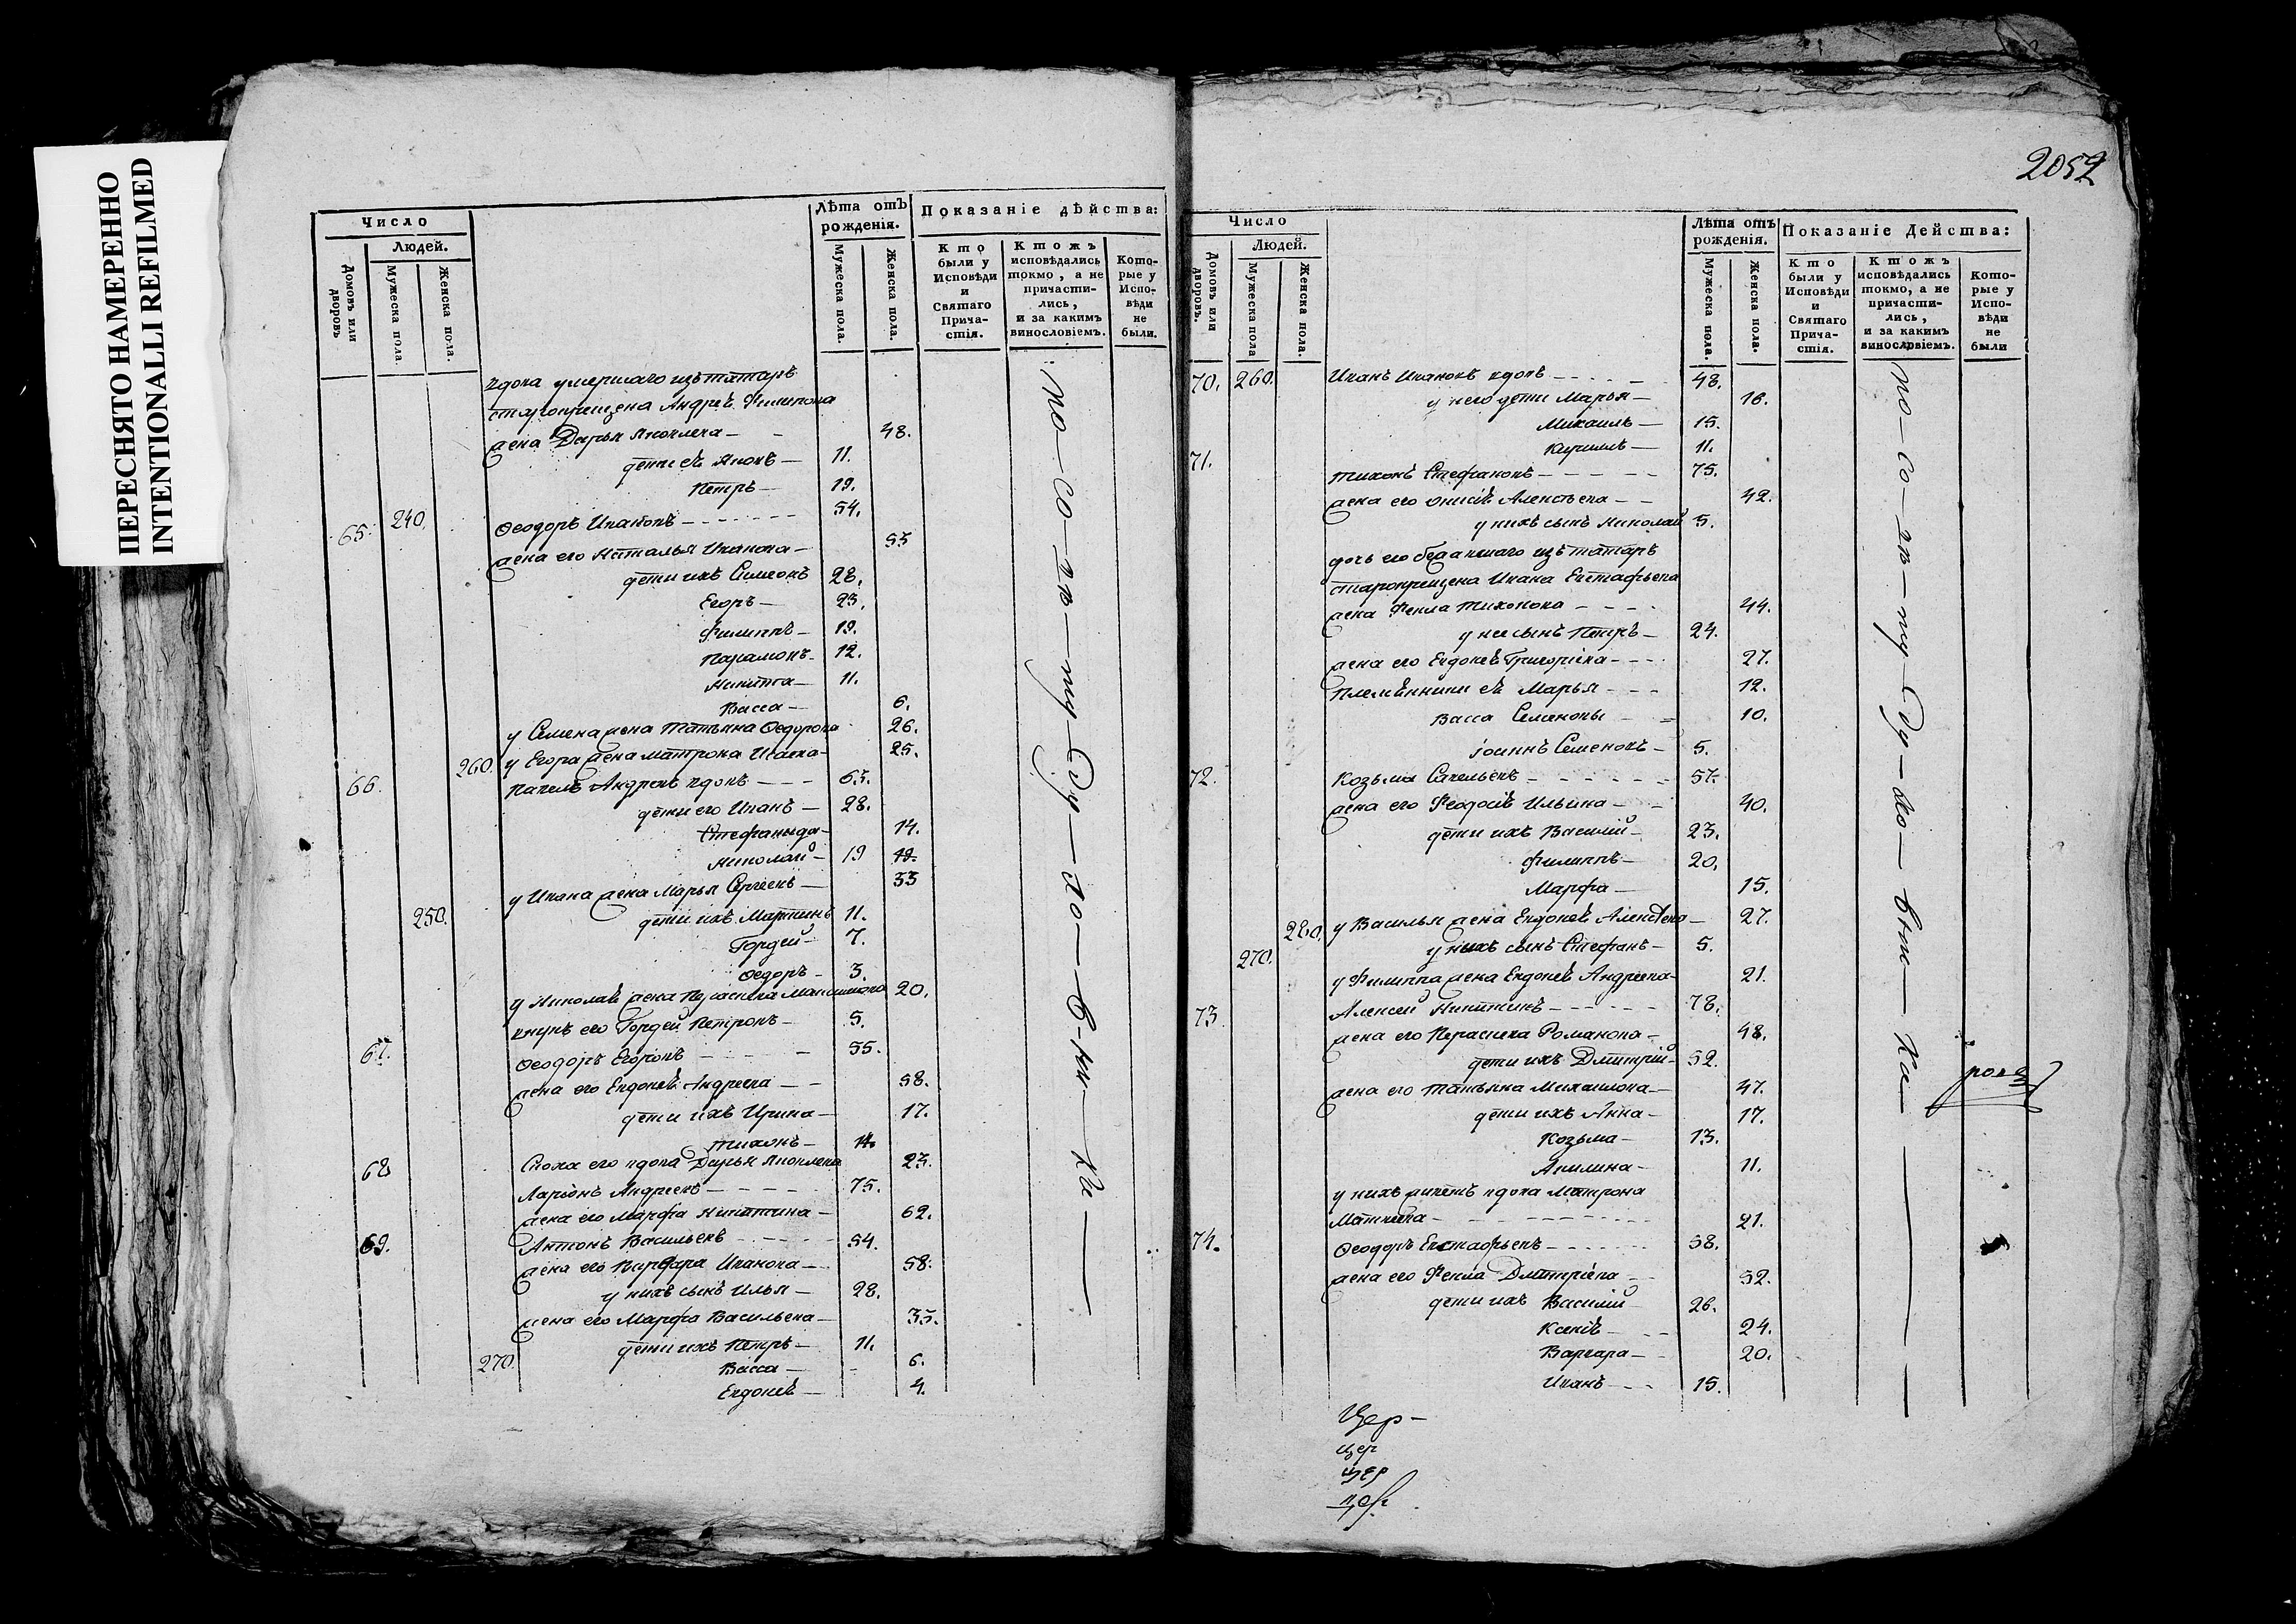 ПЕРЕСНЯТО НАМЕРЕННО
INTENTIONALLI REFILMED
Число
Людей.
Домовъ или дворовъ
Мужеска пола.
Женска пола.
Лѣта отъ рожденія.
Мужеска пола.
Женска пола.
Показаніе дѣйства:
Кто были у Исповѣди и Святаго Прича-стія.
Ктожъ исповѣдались токмо, а не причасти-лись, и за какимъ винословіемъ.
Кото-рые у Испо-вѣди не были.
вдова умершаго изъ татаръ
старокрещена Андрея Филипова
жена Дарья Яковлева — 48.
дети ея Яковъ — 11.
Петръ — 19.
65. 240. Ѳеодоръ Ивановъ — 54.
жена его Наталья Иванова — 53
дети ихъ Симеонъ 28.
Егоръ — 23.
Филиппъ — 19.
Парамонъ — 12.
Никита — 11.
Васса — 6.
у Семена жена Татьяна Ѳедорова 26.
260. у Егора жена Матрона Исаева — 25.
66. Павелъ Андреевъ вдовъ — 63.
дети его Иванъ — 28.
Стефанида — 14.
Николай — 19 19.
у Ивана жена Марья Сергеевъ — 33
250. дети ихъ Мартинъ 11.
Гордей — 7.
Ѳедоръ — 3.
у Николая жена Параскева Максимова 20.
внукъ его Гордей Петровъ — 5.
67. Ѳеодоръ Егоровъ — 55.
жена его Евдокея Андреева — 58.
дети ихъ Ирина — 17.
Тихонъ — 14.
Сноха его вдова Дарья Яковлева 23.
68 Ларіонъ Андреевъ — 75.
жена его Марфа Никитина — 62.
69. Антонъ Васильевъ — 54.
жена его Варвара Иванова — 58.
у нихъ сынъ Илья — 28.
жена его Марфа Васильева — 35.
дети ихъ Петръ — 11.
270. Васса — 6.
Евдокея — 4.
2052
Число
Людей.
Домовъ или дворовъ.
Мужеска пола
Женска пола.
Лѣта отъ рожденія.
Мужеска пола.
Женска пола.
Показаніе Действа:
Кто были у Исповѣди и Святаго Прича-стія.
Ктожъ исповѣдались токмо, а не причасти-лись, и за какимъ винословіемъ.
Кото-рые у Испо-вѣди не были
70. 260. Иванъ Ивановъ вдовъ — 48.
у него дети Марья — 18.
Михаилъ — 15.
Кириллъ — 11.
71. Тихонъ Стефановъ — 75.
жена его Алексѣева — 42.
у нихъ сынъ Николай 5.
дочь его бежавшаго изъ татаръ
старокрещена Ивана Евстафьева
жена Фекла Тихонова — 44.
у нее сынъ Петръ — 24.
жена его Евдокея Григорьева — 27.
Племѣнники ея Марья — 12.
Васса Семеновы — 10.
Іоаннъ Семеновъ — 5.
72. Козьма Савельевъ — 57.
жена его Феодосія Ильина — 40.
дети ихъ Василій — 23.
Филиппъ — 20.
Марфа — 15.
280. у Василья жена Евдокея Алексѣева — 27.
270. у нихъ сынъ Стефанъ — 5.
у Филиппа жена Евдокея Андреева — 21.
73. Алексей Никитинъ — 78.
жена его Параскева Романова — 48.
дети ихъ Дмитрій — 52.
жена его Татьяна Михаилова — 47.
дети ихъ Анна — 17.
Козьма — 13.
Акилина — 11.
у нихъ живетъ вдова Матрона
Матвѣева — 21.
74. Ѳеодоръ Евстафьевъ — 58.
жена его Фекла Дмитріева — 52.
дети ихъ Василій 26.
Ксенія — 24.
Варвара — 20.
Иванъ — 15.
Цер —
цер
цер
цер.